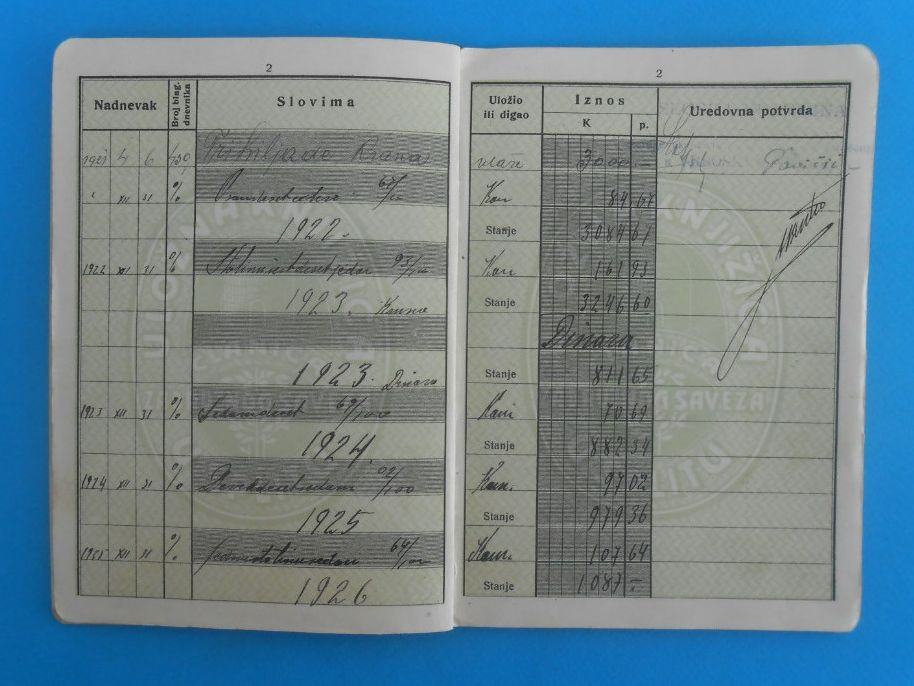 2
Nadnevak
Broj blag. dnevnika
Slovima
2
Uložio ili digao
Iznos
K p.
Uredovna potvrda
1921 4 6
3000 —
XII 31 %
67/100
Kam 84 67
1922 -
Stanje 3084 67
1922 XII 31 %
93/100
Kam 161 93
1923. Kruna
Stanje 3246 60
Dinara
1923. Dinara
Stanje 811 65
1923 XII 31 %
Sedamdeset 69/100
Kam 70 69
1924.
Stanje 882 34
1924 XII 31 %
Devetdesetsedam 02/100
Kam. 97 02
1925
Stanje 979 36
1925 XII 31 %
64/100
Kam. 107 64
1926
Stanje 1087 —